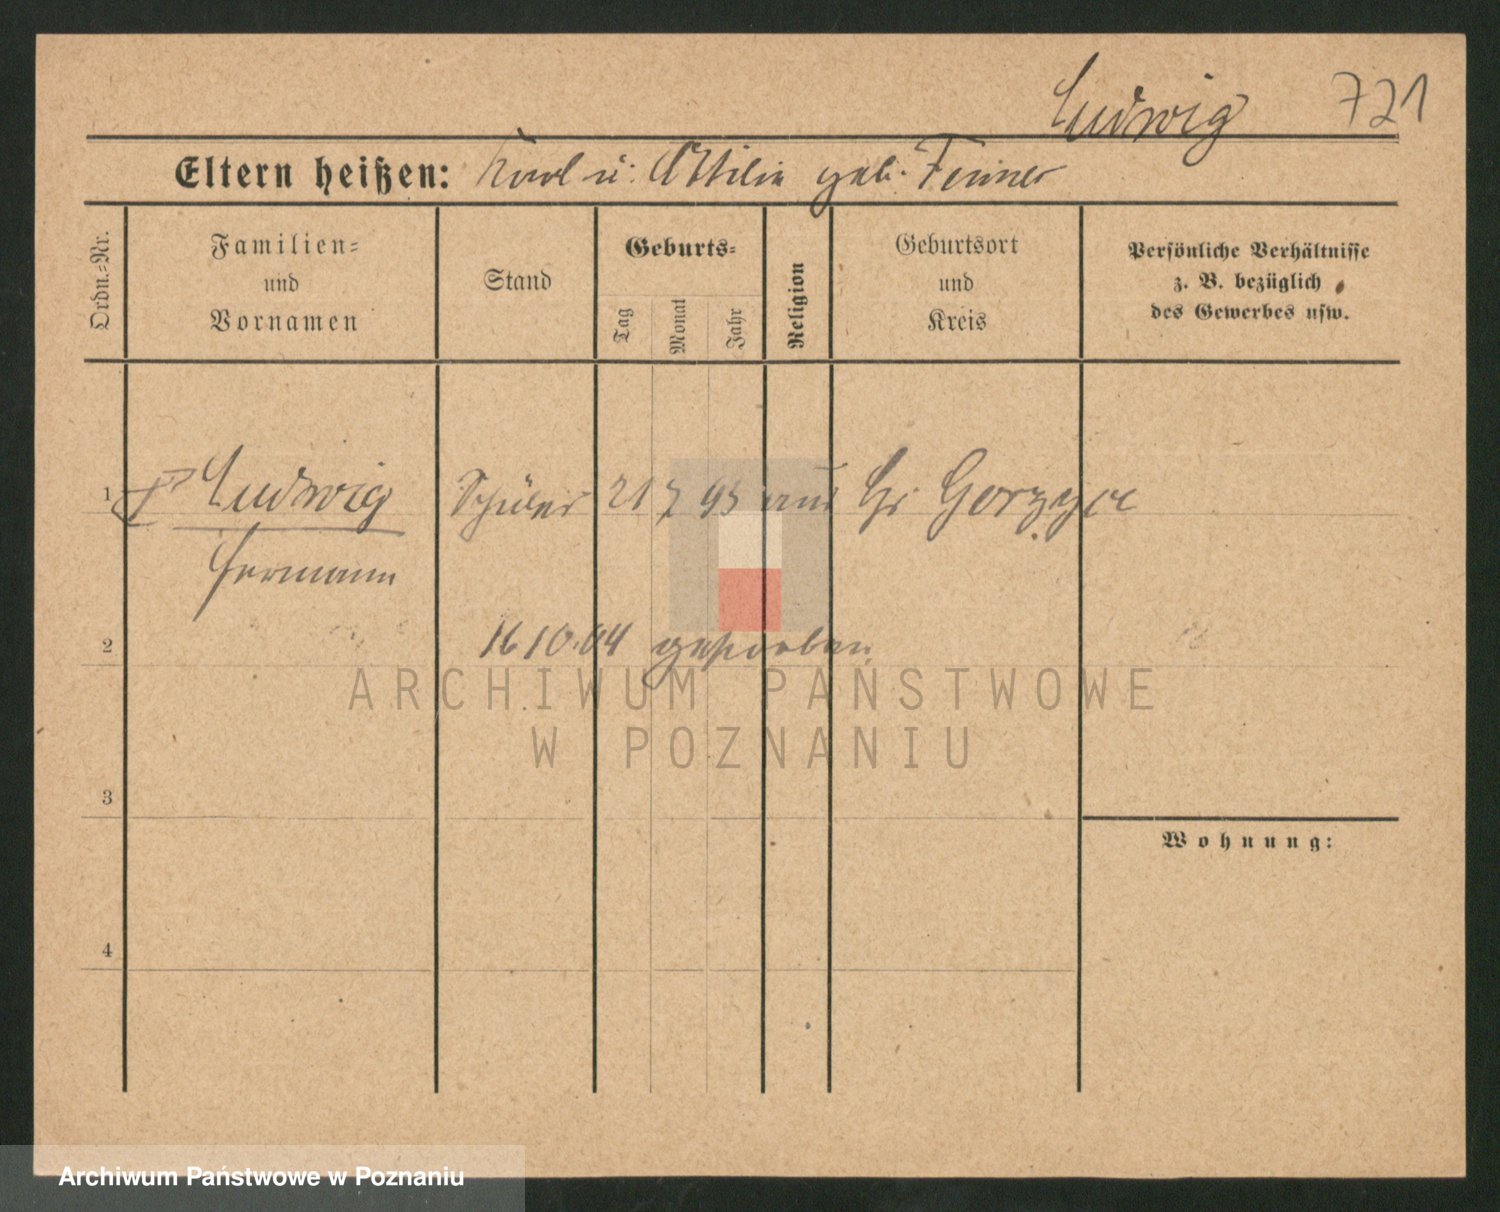 Ludwig 721
Eltern heißen: Karl u. Ottilie geb. Fenner
Ordn.-Nr.
Familien-
und
Vornamen
Stand
Geburts-
Tag
Monat
Jahr
Religion
Geburtsort
und
Kreis
Persönliche Verhältnisse
z. B. bezüglich
des Gewerbes usw.
1 Ludwig Schüler 21 7 93 Gr Gorzyca
Hermann
2 16.10.04 gestorben
3
4
Wohnung:
ARCHIWUM PAŃSTWOWE
W POZNANIU
Archiwum Państwowe w Poznaniu